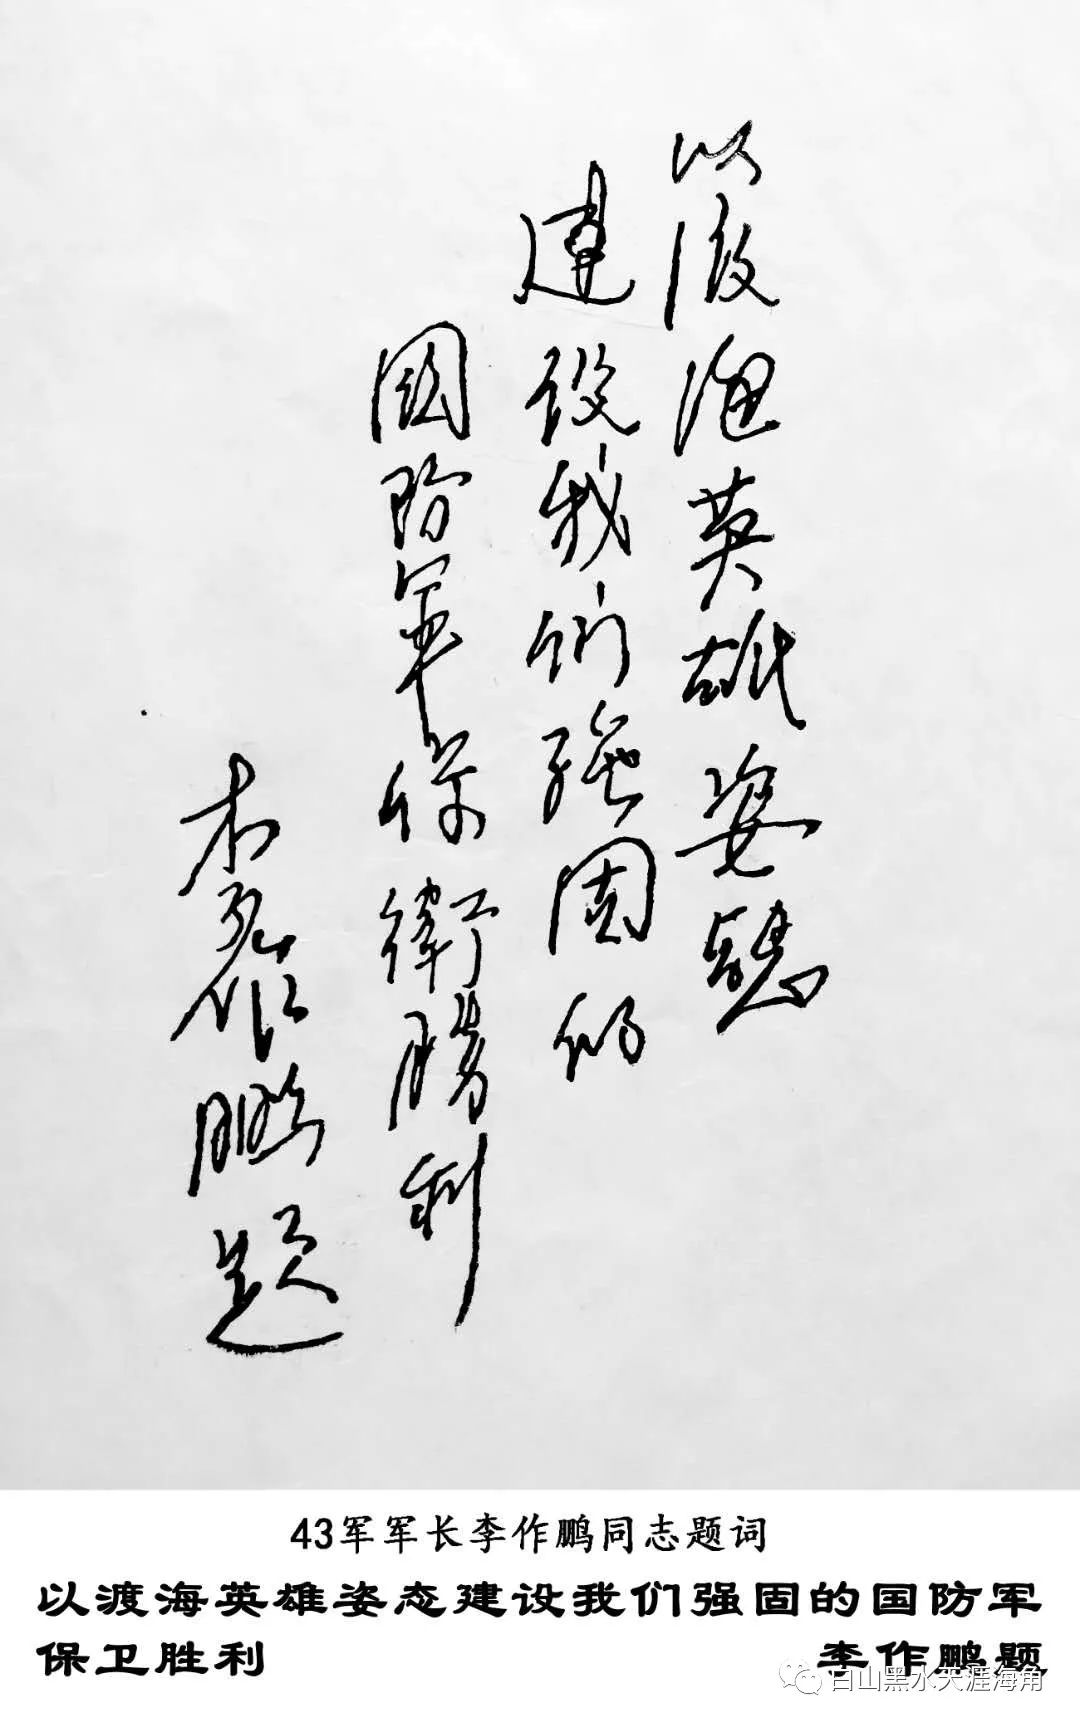 以渡海英雄姿態
建設我們强固的
國防軍保衛勝利
李作鵬题
43军军长李作鹏同志题词
以渡海英雄姿态建设我们强固的国防军
保卫胜利 李作鹏题
白山黑水天涯海角